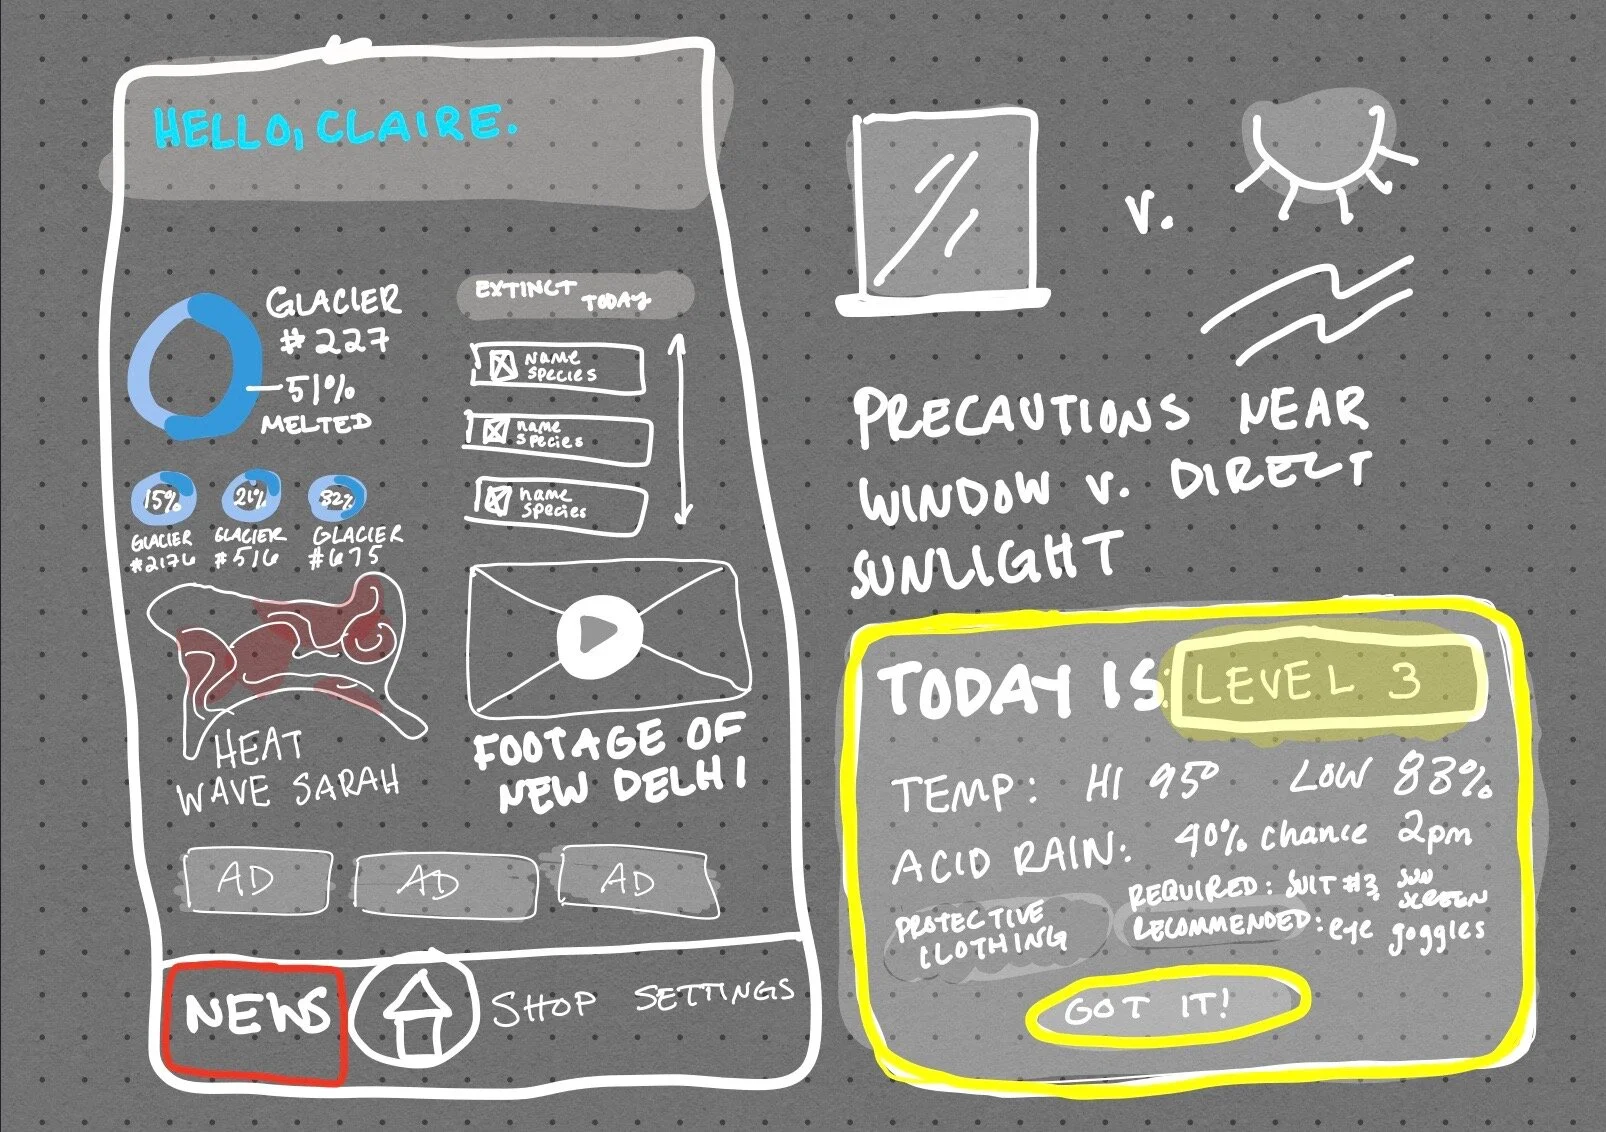 HELLO, CLAIRE.
GLACIER
#227
51%
MELTED
15%
21%
32%
GLACIER
#2176
GLACIER
#516
GLACIER
#675
EXTINCT
TODAY
name
species
name
species
name
species
HEAT
WAVE SARAH
FOOTAGE OF
NEW DELHI
AD
AD
AD
NEWS
SHOP
SETTINGS
v.
PRECAUTIONS NEAR
WINDOW v. DIRECT
SUNLIGHT
TODAY IS: LEVEL 3
TEMP: HI 95° LOW 83%
ACID RAIN: 40% chance 2pm
PROTECTIVE
CLOTHING
REQUIRED: SUIT #3, SUN
SCREEN
RECOMMENDED: eye goggles
GOT IT!